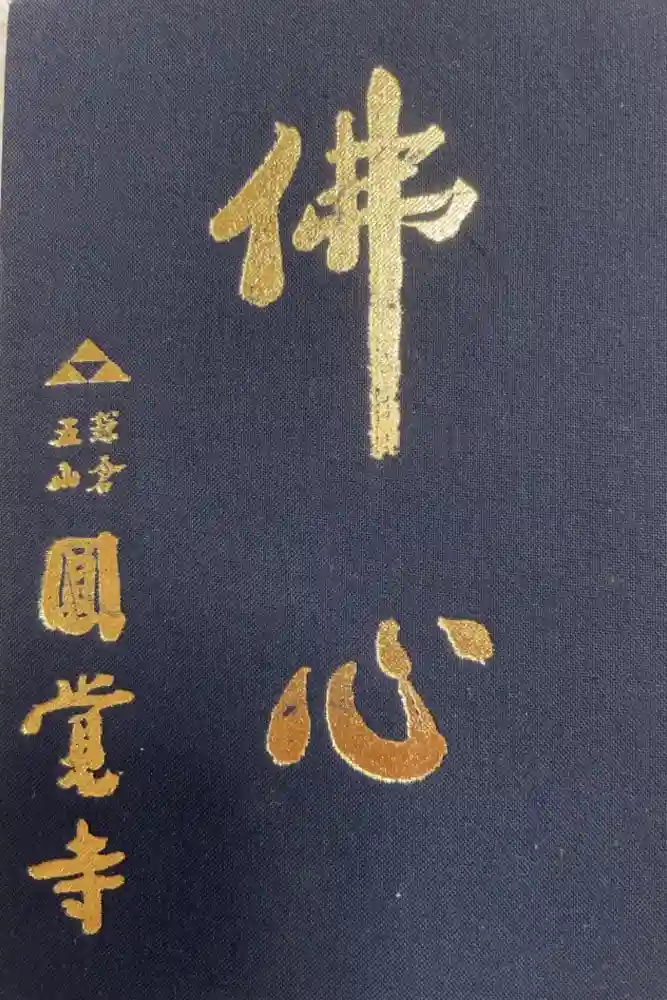 佛心
鎌倉
五山
圓覺寺